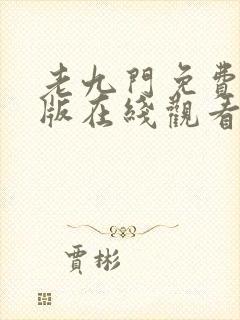 老九門免費
版在綫觀看
賈彬